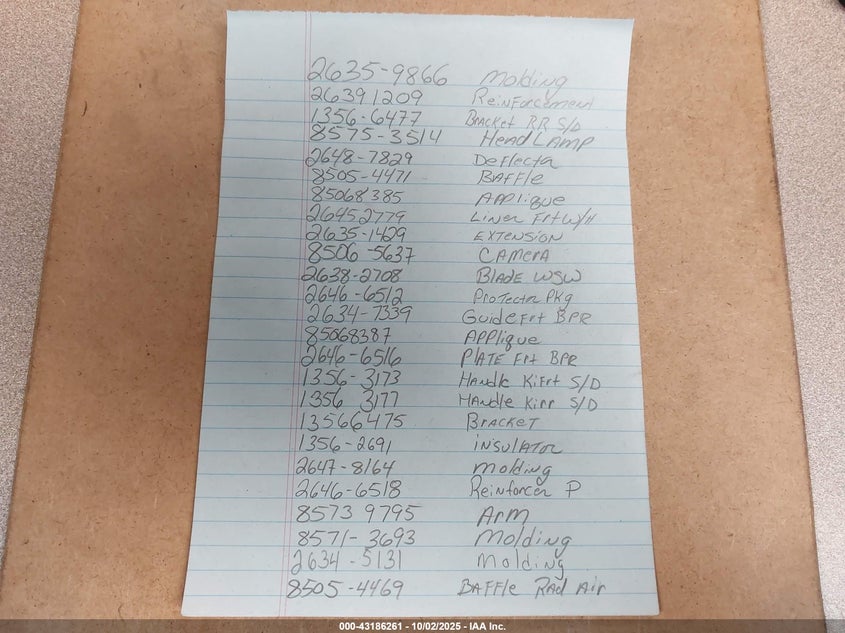 2635-9866 Molding
26391209 Reinforcement
1356-6477 Bracket RR S/D
8575-3514 HeadLAMP
2648-7829 Deflecta
8505-4471 BAFFle
85068385 APPlique
26452779 Liner Frt W/H
2635-1429 EXTENSION
8506-5637 CAMERA
2638-2708 BLADE WSW
2646-6512 Protector Pkg
2634-7339 Guide Frt BPR
85068387 APPlique
2646-6516 PLATE Frt BPR
1356-3173 Handle Ki Frt S/D
1356 3177 Handle Ki rr S/D
13566475 Bracket
1356-2691 insulator
2647-8164 Molding
2646-6518 Reinforcer P
8573 9795 Arm
8571-3693 Molding
2634-5131 Molding
8505-4469 BAFFle Rad Air
000-43186261 - 10/02/2025 - IAA Inc.